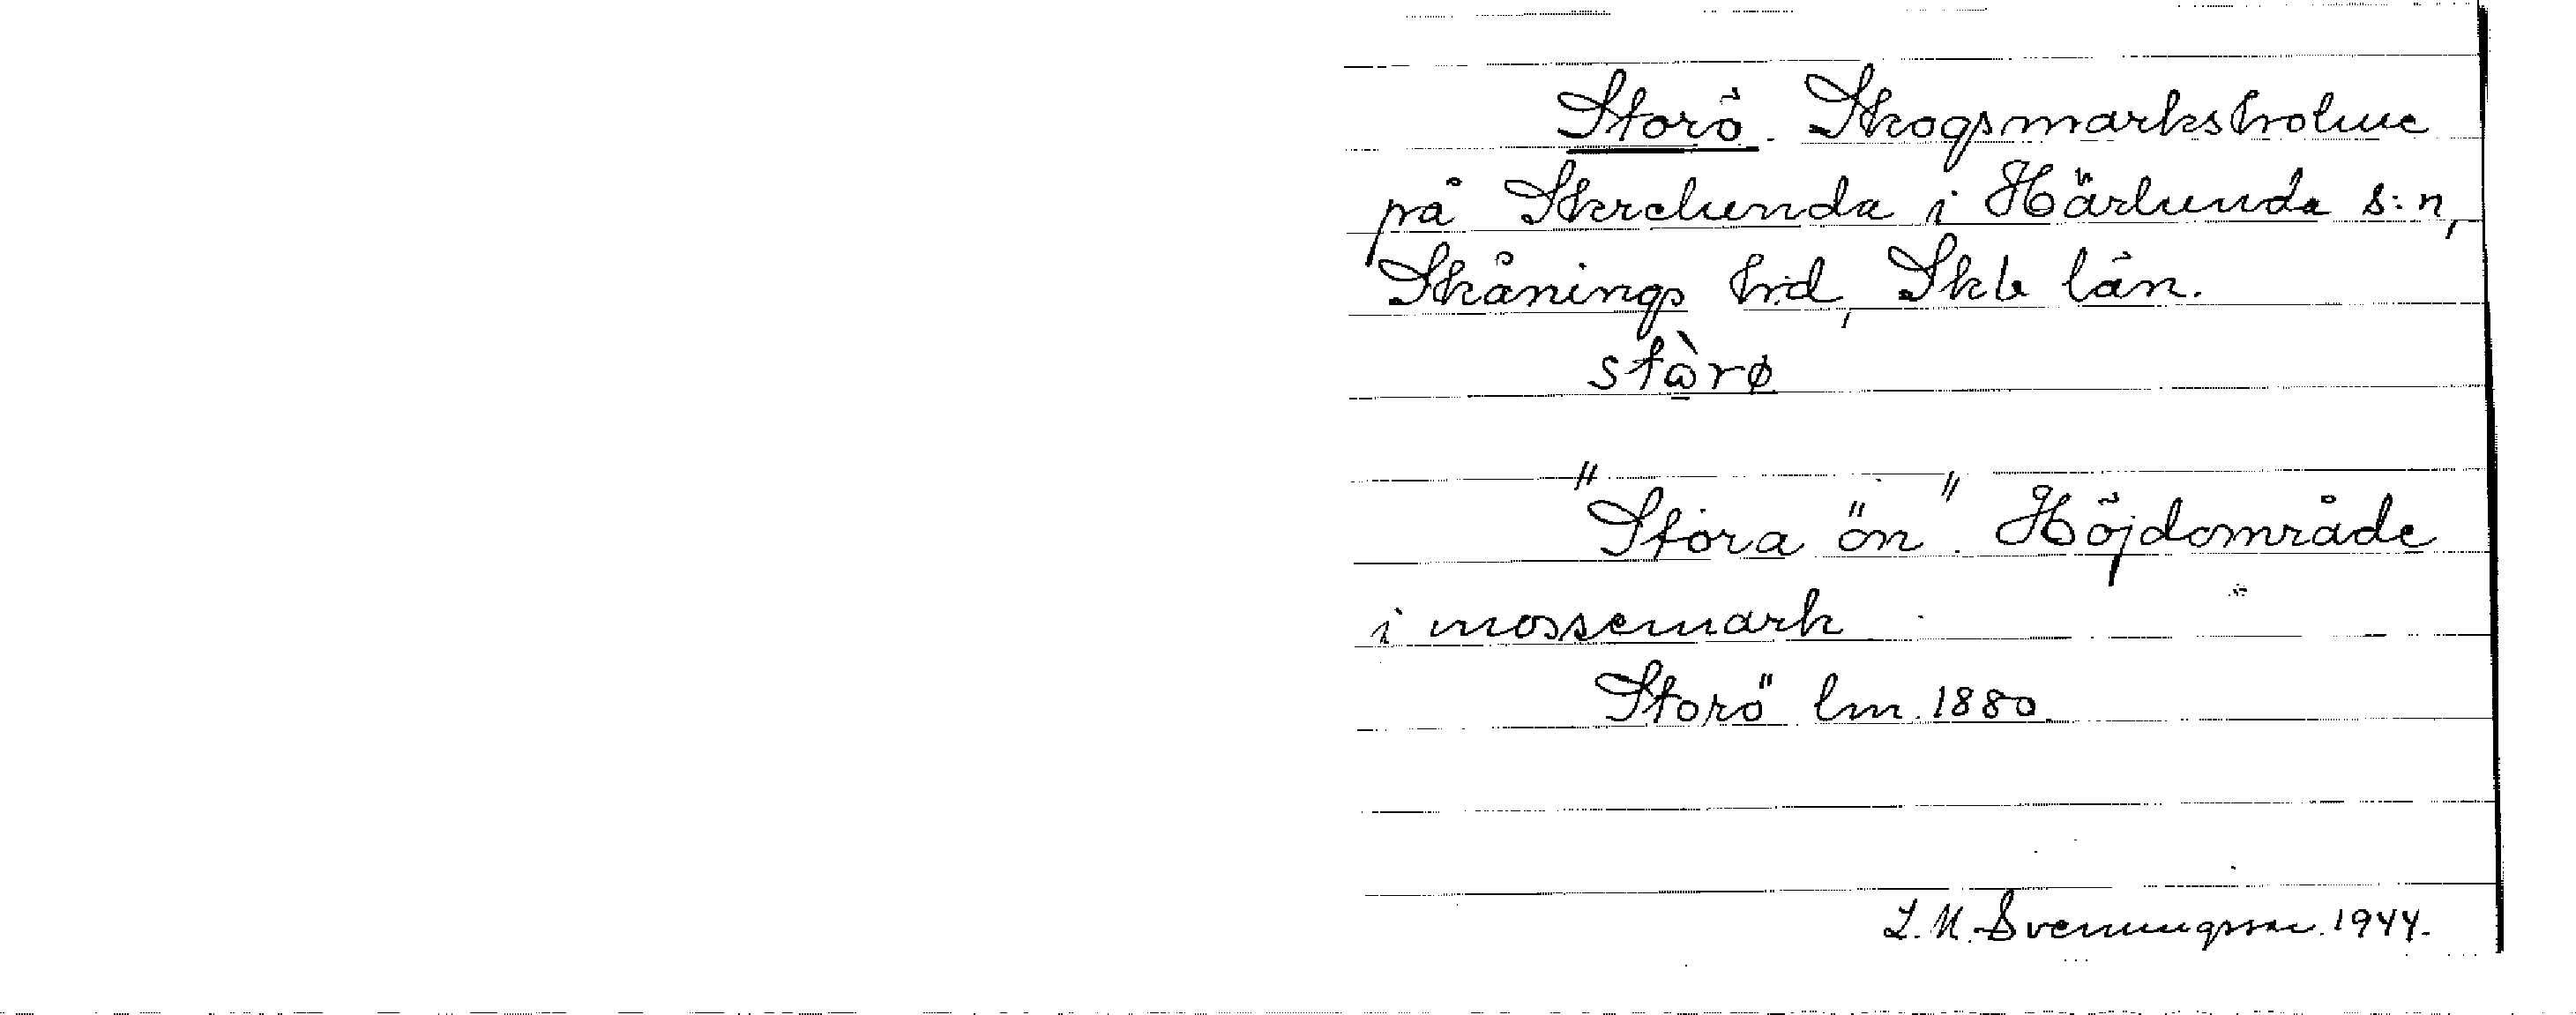 Storö. Skogsmarksholme
på Skrelunda i Härlunda s:n,
Skånings hd, Skb län.
stàrø
"Stora ön". Höjdområde
i mossemark
Storö lm. 1880.
L. M. Svenungsson. 1944.